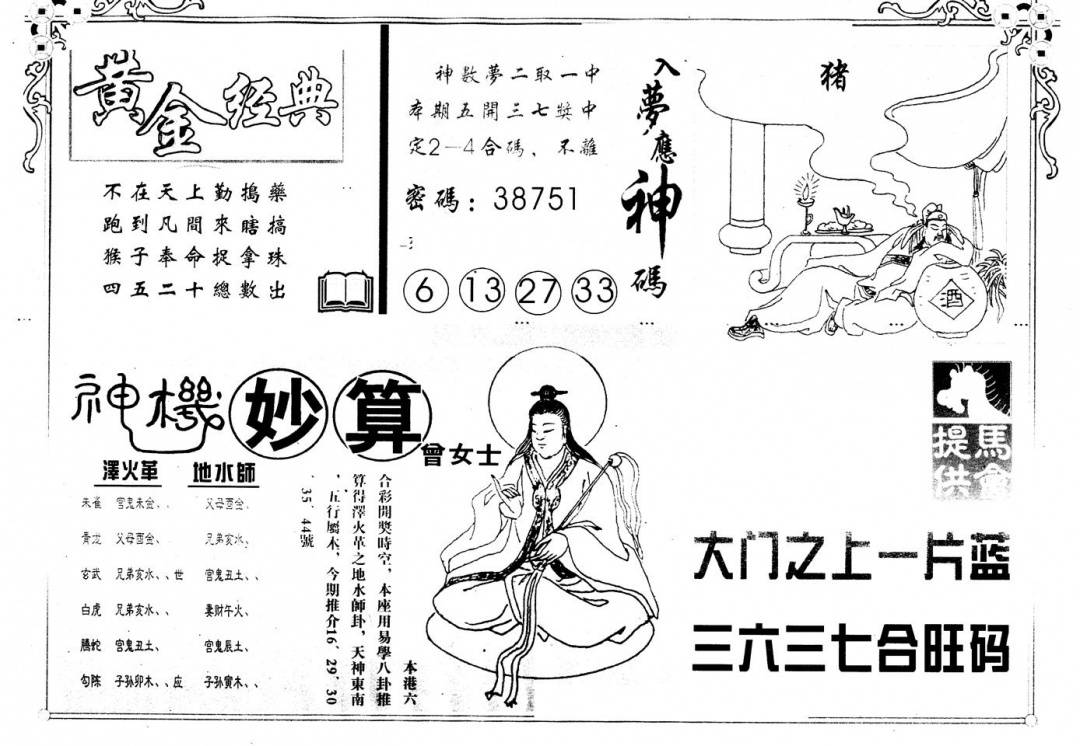 黃金經典
不在天上勤搗藥
跑到凡間來瞎搞
猴子奉命捉拿珠
四五二十總數出
神數夢二取一中
本期五開三七獎中
定2－4合碼、不離
密碼：38751
6 13 27 33
入夢應神碼
猪
酒
神機妙算
曾女士
澤火革 地水師
朱雀 官鬼未金、、 父母酉金、、
青龙 父母酉金、 兄弟亥水、、
玄武 兄弟亥水、、世 官鬼丑土、、
白虎 兄弟亥水、、 妻财午火、
騰蛇 官鬼丑土、 官鬼辰土、
勾陈 子孙卯木、、应 子孙寅木、、
本港六
合彩開獎時空，本座用易學八卦推
算得澤火革之地水師卦，天神東南
，五行屬木，今期推介16、29、30
、35、44號
馬會提供
大门之上一片蓝
三六三七合旺码